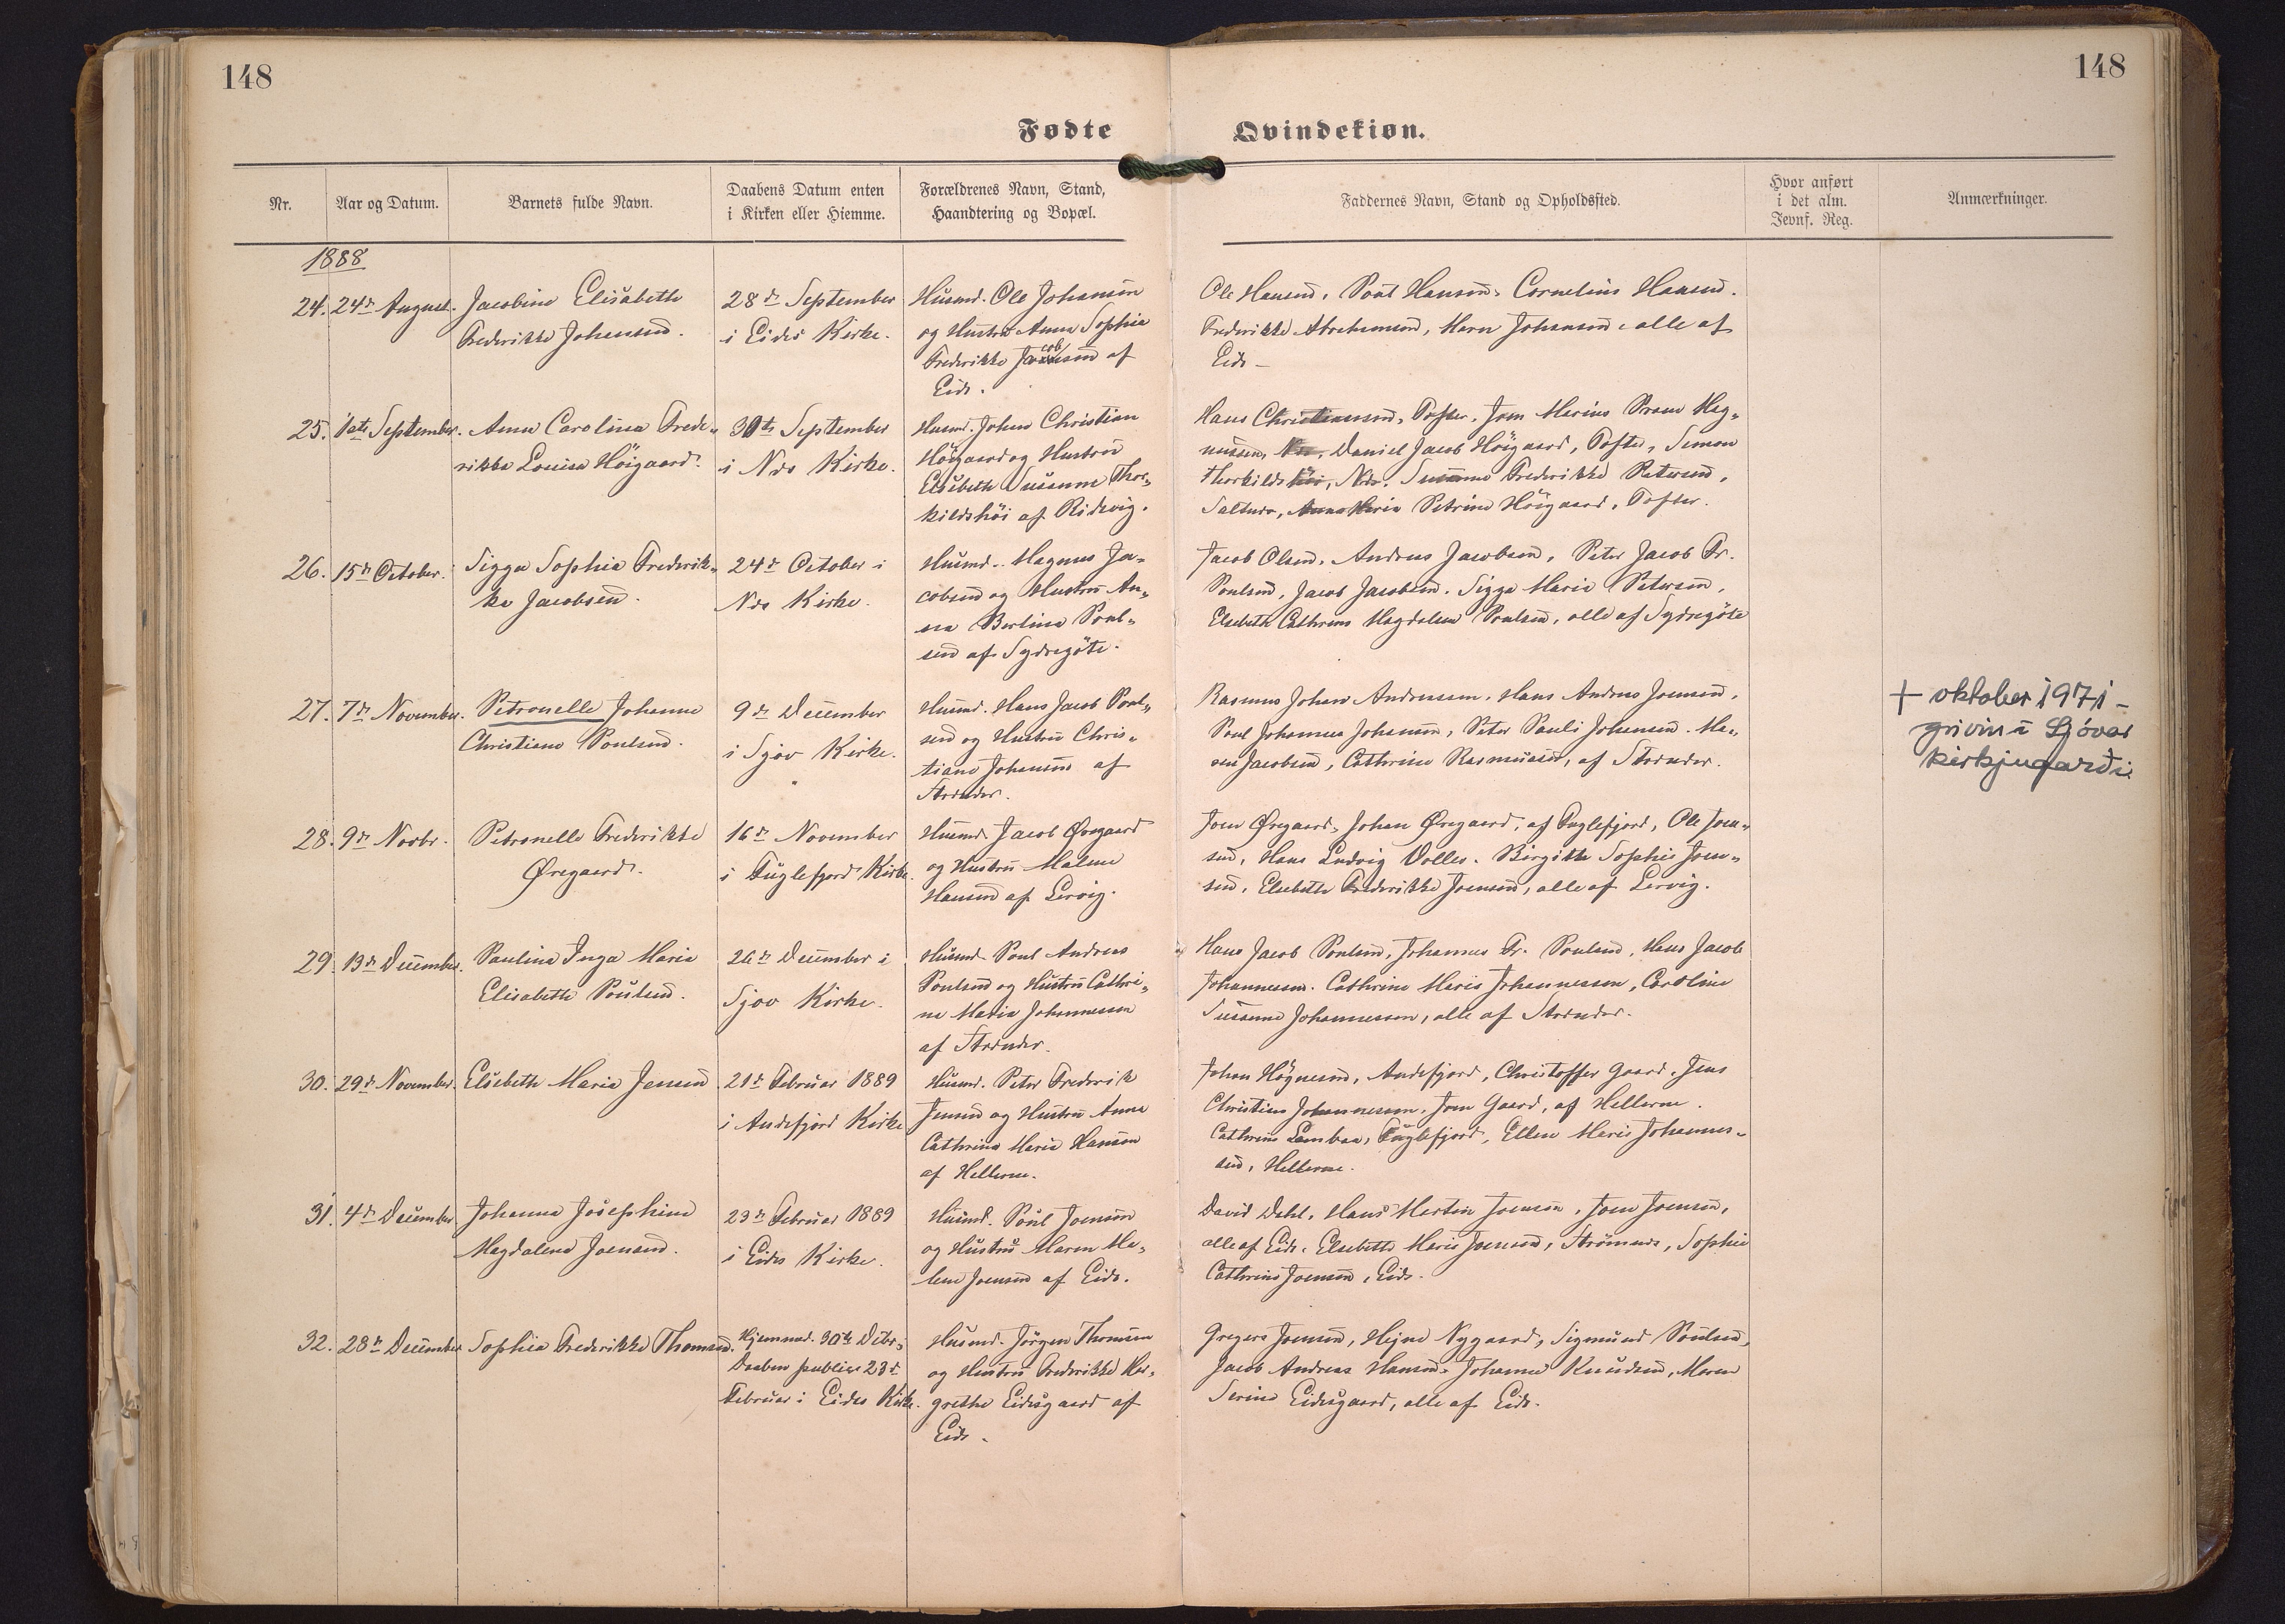 148
148
Fødte
Qvindekiøn.
Nr.
Aar og Datum.
Barnets fulde Navn.
Daabens Datum enten
i Kirken eller Hiemme.
Forældrenes Navn, Stand,
Haandtering og Bopæl.
Faddernes Navn, Stand og Opholdssted.
Hvor anført
i det alm.
Jevnf. Reg.
Anmærkninger.
1888
24. 24de August.
Jacobine Elisabeth
Frederikke Johansen.
28de September
i Eides Kirke.
Husmd. Ole Johansen
og Hustru Anna Sophie
Frederikke Jacobsen af
Eide.
Ole Hansen, Poul Hansen, Cornelius Hansen.
Frederikke Abrahamsen, Maren Johansen, alle af
Eide
25. 1ste September.
Anna Carolina Frede-
rikke Louisa Höigaard.
30te September
i Næs Kirke.
Husmd. Johan Christian
Höigaard og Hustru
Elsebeth Susanne Thor-
kildshöi af Ridevig.
Hans Christiansen, Tofter. Joen Marius Mag-
nussen, Daniel Jacob Höigaard, Tofter, Simon
Thorkildshöi, Næs. Susanne Frederikke Petersen,
Saltnes, Anna Maria Petrine Höigaard, Tofter.
26. 15de October.
Sigga Sophie Frederik-
ke Jacobsen.
24de October i
Næs Kirke.
Husmd. Magnus Ja-
cobsen og Hustru An-
na Berlina Poul-
sen af Sydregöte.
Jacob Olsen, Andreas Jacobsen, Peter Jacob Fr.
Poulsen, Jacob Jacobsen. Sigga Marie Petersen,
Elsebeth Cathrine Magdalene Poulsen, alle af Sydregöte
27. 7de November.
Petronelle Johanne
Christiane Poulsen.
9de December
i Sjov Kirke.
Husmd. Hans Jacob Poul-
sen og Hustru Chris-
tiane Johansen af
Strender.
Rasmus Johan Andreasen, Hans Andreas Joensen,
Poul Johannes Johansen, Peter Pauli Johansen. Ma-
ren Jacobsen, Cathrine Rasmussen, af Strender.
+ oktober 1971 –
grivin í Sjóvar
kirkjugarði
28. 9de Novbr.
Petronelle Frederikke
Øregaard.
16de November
i Fuglefjord Kirke.
Husmd. Jacob Øregaard
og Hustru Malene
Hansen af Lervig.
Joen Øregaard, Johan Øregaard, af Fuglefjord, Ole Joen-
sen, Hans Ludvig Volles. Birgithe Sophie Joen-
sen, Elsebeth Frederikke Joensen, alle af Lervig.
29. 13de December.
Paulina Inga Maria
Elisabeth Poulsen.
26de December i
Sjov Kirke.
Husmd. Poul Andreas
Poulsen og Hustru Cathri-
ne Maria Johannesen
af Strender.
Hans Jacob Poulsen, Johannes Fr. Poulsen, Hans Jacob
Johannesen. Cathrine Marie Johannessen, Caroline
Susanne Johannessen, alle af Strender.
30. 29de November.
Elsebeth Maria Jensen
21de Februar 1889
i Andefjord Kirke
Husmd. Peter Frederik
Jensen og Hustru Anna
Cathrina Maria Hansen
af Hellerne.
Johan Högnesen, Andefjord, Christoffer Gaard, Jens
Christian Johannessen, Joen Gaard, af Hellerne.
Cathrine Lambaa, Fuglefjord, Ellen Marie Johannes-
sen, Hellerne.
31. 4de December
Johanna Josephine
Magdalena Joensen.
23de Februar 1889
i Eides Kirke.
Husmd. Poul Joensen
og Hustru Maren Ma-
lene Joensen af Eide.
David Dahl, Hans Martin Joensen, Joen Joensen,
alle af Eide. Elsebeth Marie Joensen, Strömnæs, Sophie
Cathrine Joensen, Eide.
32. 28de December
Sophia Frederikke Thomsen.
Hjemmed. 30te Decbr.;
Daaben public. 23de
Februar i Eides Kirke.
Husmd. Jörgen Thomsen
og Hustru Frederikke Mar-
grethe Eidesgaard af
Eide.
Gregers Joensen, Hejne Nygaard, Sigmund Poulsen,
Jacob Andreas Hansen, Johanne Knudsen, Maren
Serine Eidesgaard, alle af Eide.